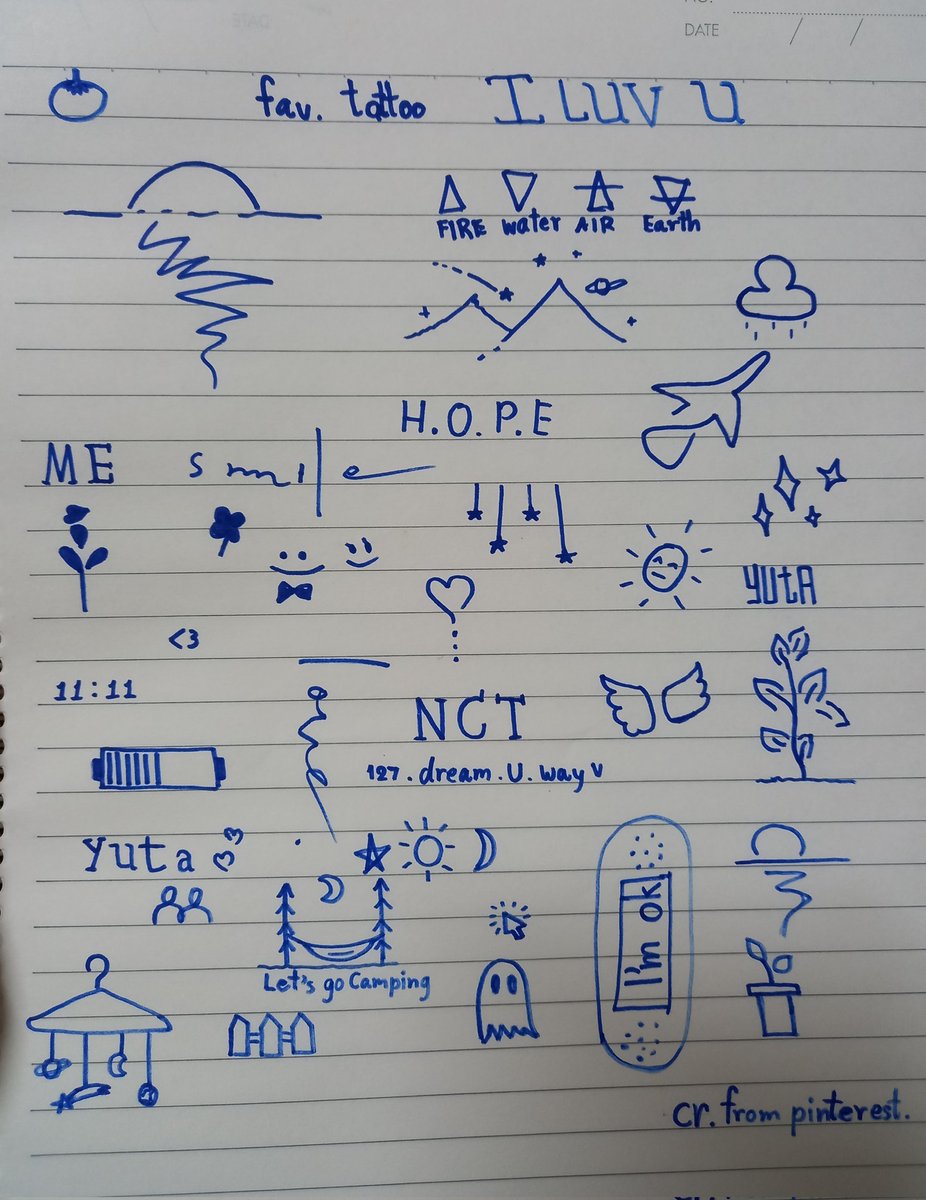 NO.
DATE / /
fav. tattoo I LUV U
FIRE water AIR Earth
H.O.P.E
ME smile
YUtA
<3
11:11
NCT
127. dream. U. way v
Yuta
I'm ok
Let's go Camping
cr. from pinterest.